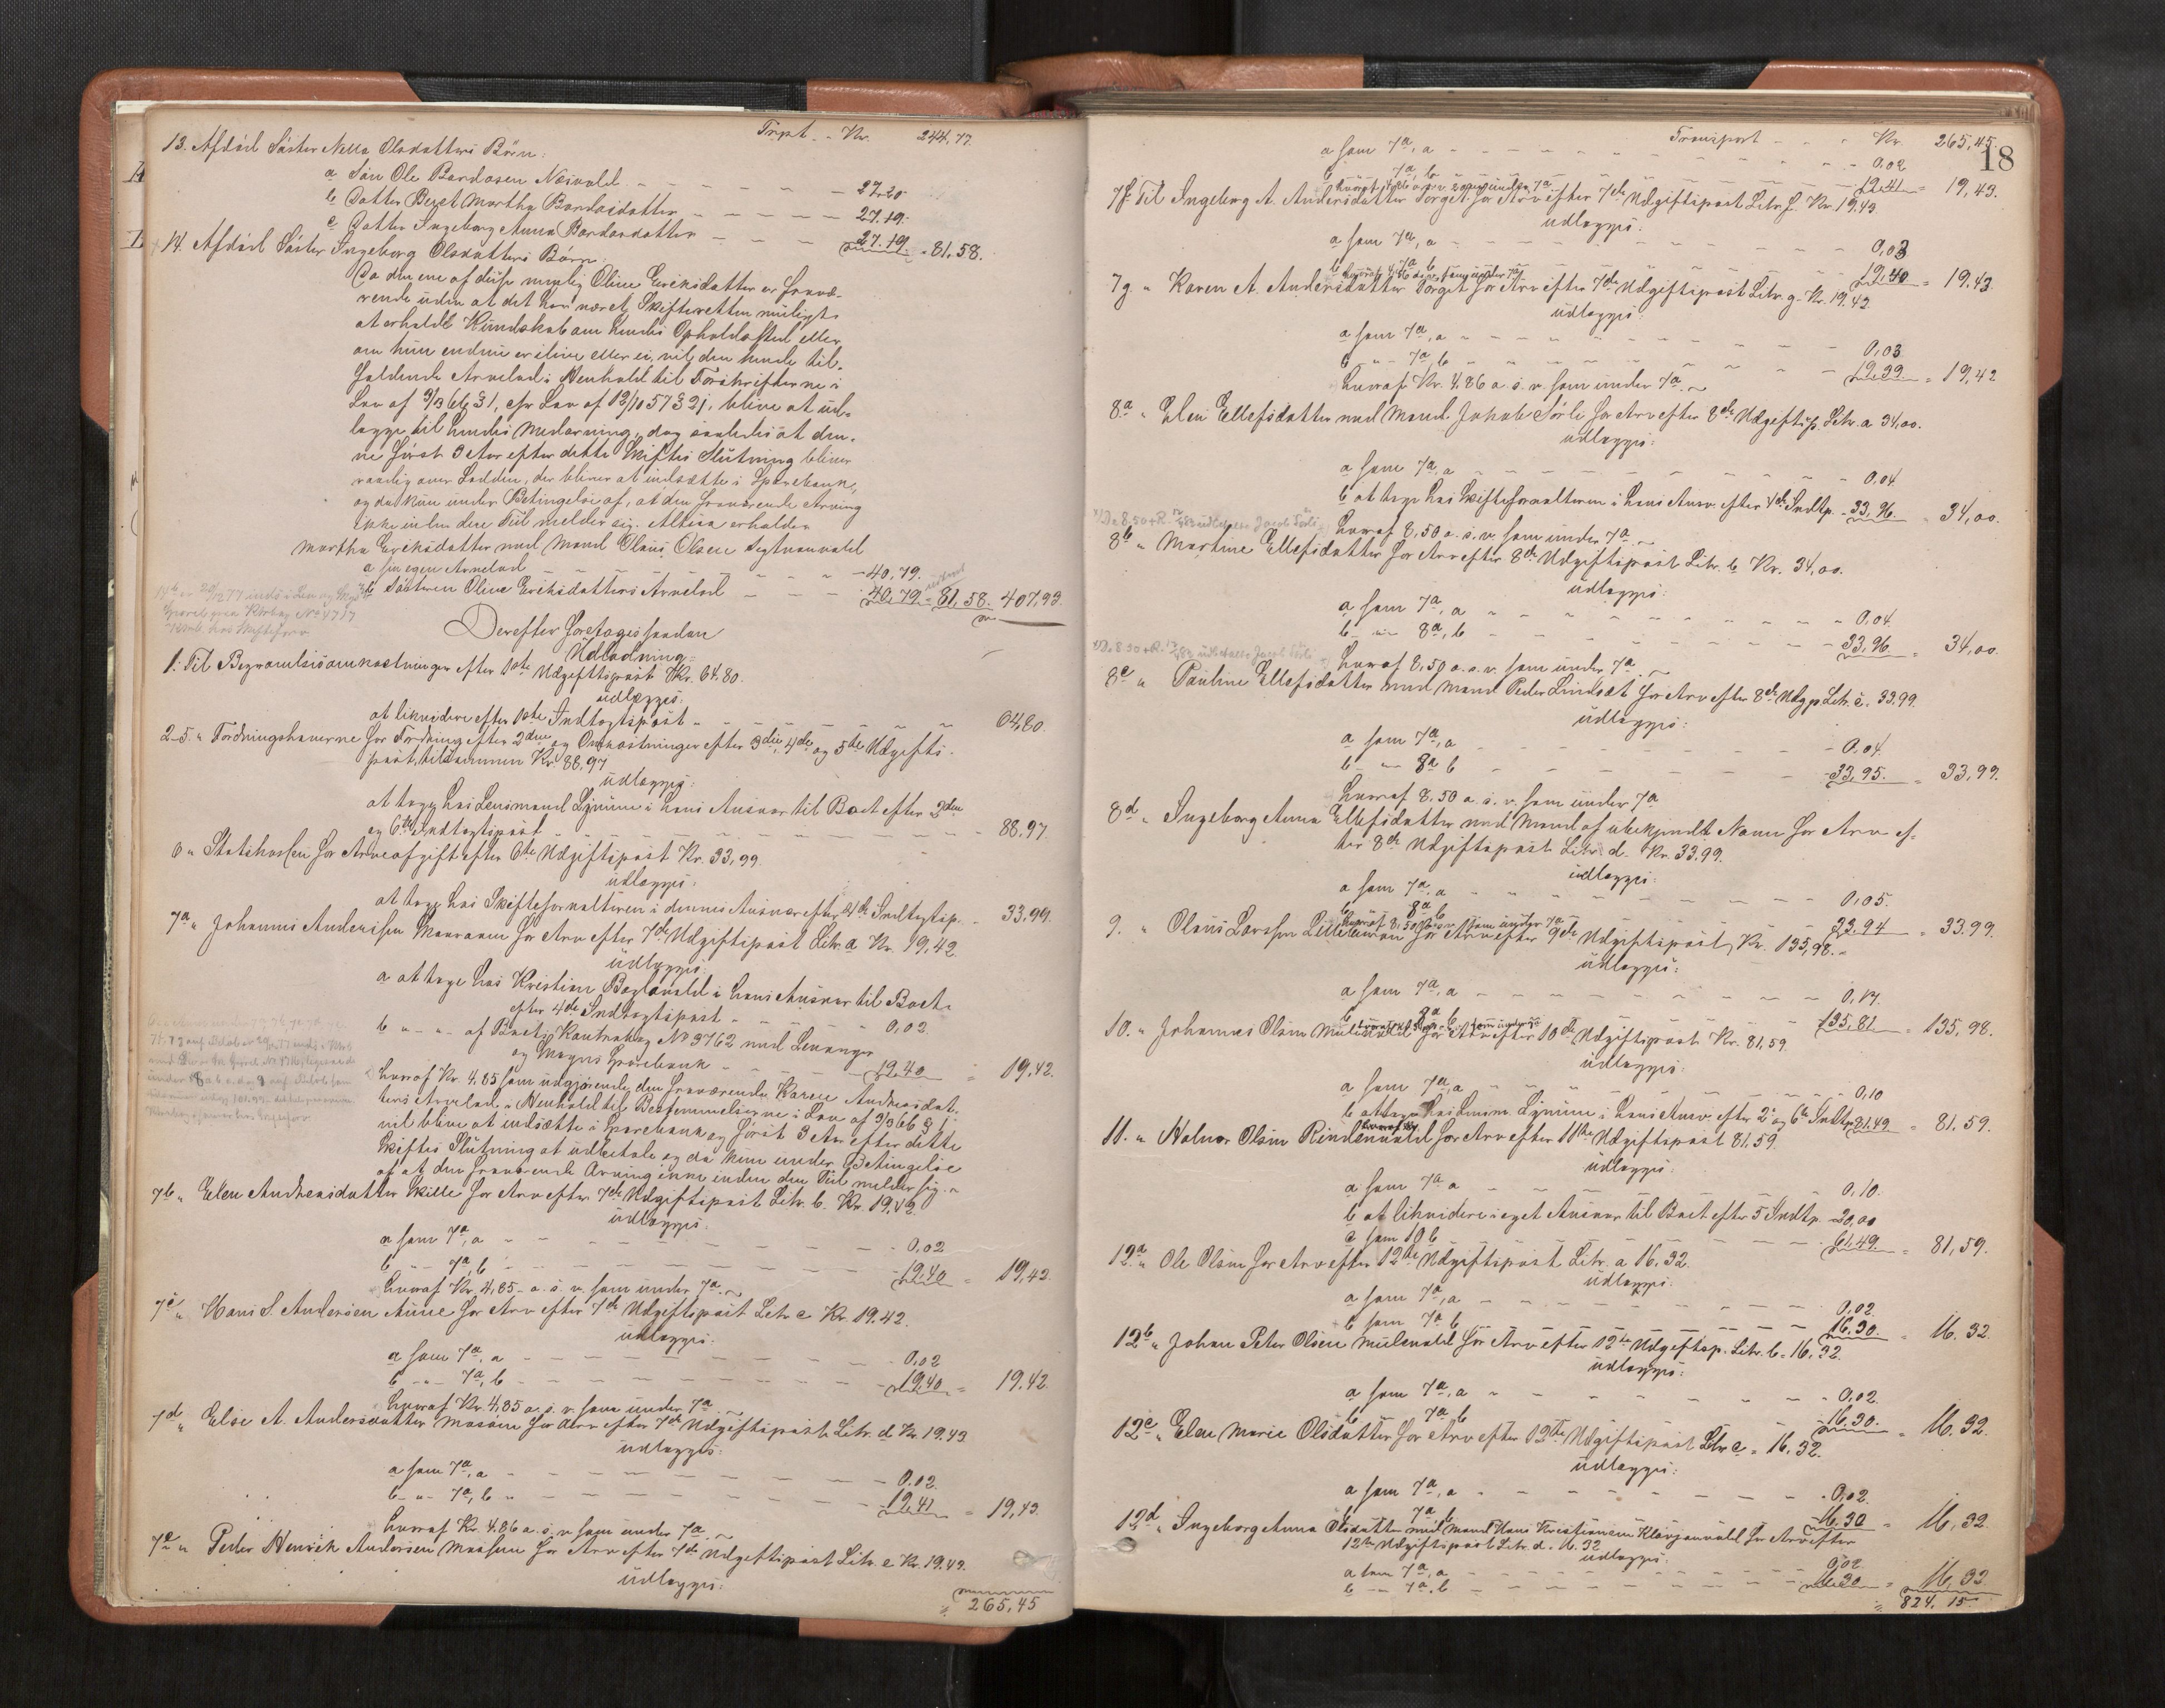 Trpt. - Kr. 244,77.
13. Afdød Søster Nella Olsdatters Børn:
a Søn Ole Bardosen Næsvald - - - 27,20
b Datter Berit Martha Bardosdatter - - - 27.19.
c Datter Ingeborg Anna Bardosdatter - - - 27.19 = 81,58.
14. Afdød Søster Ingeborg Olsdatters Børn
Da den ene af disse nemlig Oline Erichsdatter er fravæ-
rende uden at det har været Skifteretten muligt
at erholde Kundskab om hendes Opholdssted eller
om hun endnu er ilive eller ei, vil den hende til-
faldende Arvelod i Henhold til Forskrifterne i
Lov af 3/3 66 § 1, cfr Lov af 12/10 57 § 21, blive at ud-
lægge til hendes Medarving, dog saaledes at den-
ne først 3 Aar efter dette Skiftes Slutning bliver
raadig over Lodden, der bliver at indsætte i Sparebank,
og da kun under Betingelse af, at den fraværende Arving
ikke inden den Tid melder sig. Altsaa erholder
Martha Erichsdatter med Mand Olaus Olsen
a sin egen Arvelod - - - 40,79.
b Søsteren Oline Erichsdatters Arvelod - - - 40,79 = 81,58. 407,93.
Derefter foretoges saadan
Udlodning:
1. Til Begravelsesomkostninger efter 1ste Udgiftspost Kr. 64,80.
udlægges:
at likvidere efter 1ste Indtægtspost - - - 64,80.
2-5. " Fordringshaverne for Fordring efter 2den og Omkostninger efter 3die, 4de og 5te Udgifts-
post, tilsammen Kr. 88,97
udlægges:
at tage hos Lensmand Lynum i hans Ansvar til Boet efter 2den
og 6te Indtægtspost - - - 88,97.
6 " Statskassen for Arveafgift efter 6te Udgiftspost Kr. 33,99.
udlægges:
at tage hos Skifteforvalteren i dennes Ansvar efter 4de Indtægtsp. - 33,99.
7a " Johannes Andersen for Arv efter 7de Udgiftspost Litr. a Kr. 19,42
udlægges:
a at tage hos Kristian Baglovald i hans Ansvar til Boet
efter 4de Indtægtspost - - - 0,02.
b " - " - af Boets Kontrabog No 3762 med Levanger
og Skogns Sparebank - - - 19,40 = 19,42.
hvoraf Kr. 4,85 som udgjørende den fraværende Karen Andreasdat-
ters Arvelod i Henhold til Bestemmelserne i Lov af 3/3 66 § 1
vil blive at indsætte i Sparebank og først 3 Aar efter dette
Skiftes Slutning at udbetale og da kun under Betingelse
af at den fraværende Arving ikke inden den Tid melder sig. -
7b " Elen Andreasdatter Skille for Arv efter 7de Udgiftspost Litr. b. Kr. 19,42
udlægges:
a som 7a, a - - - 0,02
b - " - 7a, b - - - 19,40 = 19,42.
hvoraf Kr. 4,85 - o. s. v. som under 7a.
7c " Hans S. Andersen Aune for Arv efter 7de Udgiftspost Litr. c Kr. 19,42.
udlægges:
a som 7a, a - - - 0,02
b - " - 7a, b - - - 19,40 = 19,42.
hvoraf Kr. 4,85 o. s. v. som under 7a.
7d " Else A. Andersdatter for Arv efter 7de Udgiftspost Litr. d. Kr. 19,43.
udlægges:
a som 7a, a - - - 0,02
b - " - 7a, b - - - 19,41 = 19,43.
hvoraf Kr. 4,86 o. s. v. som under 7a.
7e " Peder Henrik Andersen for Arv efter 7de Udgiftspost Litr. e Kr. 19,43.
udlægges:
265,45
18
Transport - - - Kr. 265,45.
a som 7a, a - - - 0,02
b 7a, b - - - 19,41 = 19,43.
hvoraf 4,86 o. s. v. som under 7a
7f. Til Ingeborg A. Andersdatter Borget for Arv efter 7de Udgiftspost Litr. f. Kr. 19,43
udlægges:
a som 7a, a - - - 0,03
b 7a, b - - - 19,40 = 19,43.
hvoraf 4,86 o. s. v. som under 7a
7g " Karen A. Andersdatter Borget for Arv efter 7de Udgiftspost Litr. g. Kr. 19,42
udlægges:
a som 7a, a - - - 0,03
b - " - 7a, b - - - 19,39 = 19,42
hvoraf Kr. 4,86 o. s. v. som under 7a.
8a " Elen Ellefsdatter med Mand Jakob Sørli for Arv efter 8de Udgiftsp. Litr. a 34,00.
udlægges:
a som 7a, a - - - 0,04
b at tage hos Skifteforvalteren i hans Ansv. efter 4de Indtp. - 33,96 = 34,00.
hvoraf 8,50 o. s. v. som under 7a.
8b " Martine Ellefsdatter for Arv efter 8de Udgiftspost Litr. b Kr. 34,00.
udlægges:
a som 7a, a - - - 0,04.
b - " - 8a, b - - - 33,96. = 34,00.
hvoraf 8,50 o. s. v. som under 7a.
8c " Pauline Ellefsdatter med Mand Peder Lindsæt for Arv efter 8de Udgp. Litr. c. 33,99.
udlægges:
a som 7a, a - - - 0,04.
b - " - 8a b - - - 33,95. = 33,99.
hvoraf 8,50 o. s. v. som under 7a
8d " Ingeborg Anna Ellefsdatter med Mand af ubekjendt Navn for Arv ef-
ter 8de Udgiftspost Litr. d. Kr. 33,99.
udlægges:
a som 7a, a - - - 0,05.
b 8a b - - - 33,94 = 33.99.
hvoraf 8,50 o. s. v. som under 7a
9. " Olaus Larssen for Arv efter 9de Udgiftspost, Kr. 135,98.
udlægges:
a som 7a, a - - - 0,17.
b 8a b - - - 135,81 = 135,98.
10. " Johannes Olsen Mulevald for Arv efter 10de Udgiftspost Kr. 81,59
udlægges:
a som 7a, a - - - 0,10
b at tage hos Lensm. Lynum i hans Ansv. efter 2. og 6te Indtp. 81,49 = 81,59.
11. " Halvor Olsen Rindenvald for Arv efter 11te Udgiftspost 81,59
udlægges:
a som 7a a - - - 0,10.
b at likvidere i eget Ansvar til Boet efter 5 Indtp. 20,00
c som 10 b - - - 61,49. = 81,59.
12a " Ole Olsen for Arv efter 12te Udgiftspost Litr. a 16,32.
udlægges:
a som 7a, a - - - 0,02.
b som 7a b - - - 16,30. = 16,32.
12b " Johan Peter Olsen Mulevald for Arv efter 12te Udgiftsp. Litr. b. 16,32.
udlægges:
a som 7a, a - - - 0,02.
b 7a b - - - 16,30. = 16,32.
12c " Elen Marie Olsdatter for Arv efter 12te Udgiftspost Litr. c = 16,32.
udlægges:
a som 7a, a - - - 0,02.
b 7a b - - - 16,30 = 16,32.
12d " Ingeborg Anna Olsdatter med Mand Hans Kristiansen for Arv efter
12te Udgiftspost Litr. d. 16,32
udlægges:
a som 7a, a - - - 0,02
b - " - 7a, b - - - 16,30 = 16,32
824,15